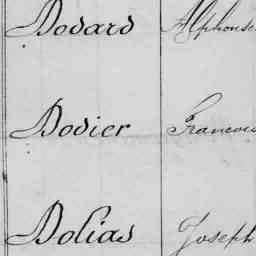 Dodard Alphonse
Dodier Francois
Dolias Joseph